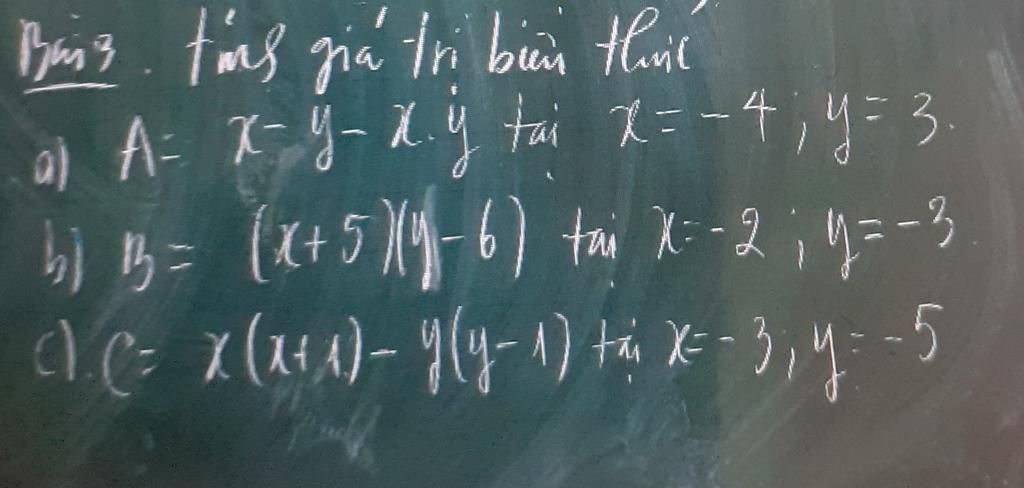 Bài 3. tính giá trị biểu thức
a) A = x - y - x.y tại x = -4; y = 3.
b) B = (x+5)(y-6) tại x = -2; y = -3.
c). C = x(x+1) - y(y-1) tại x = -3; y = -5